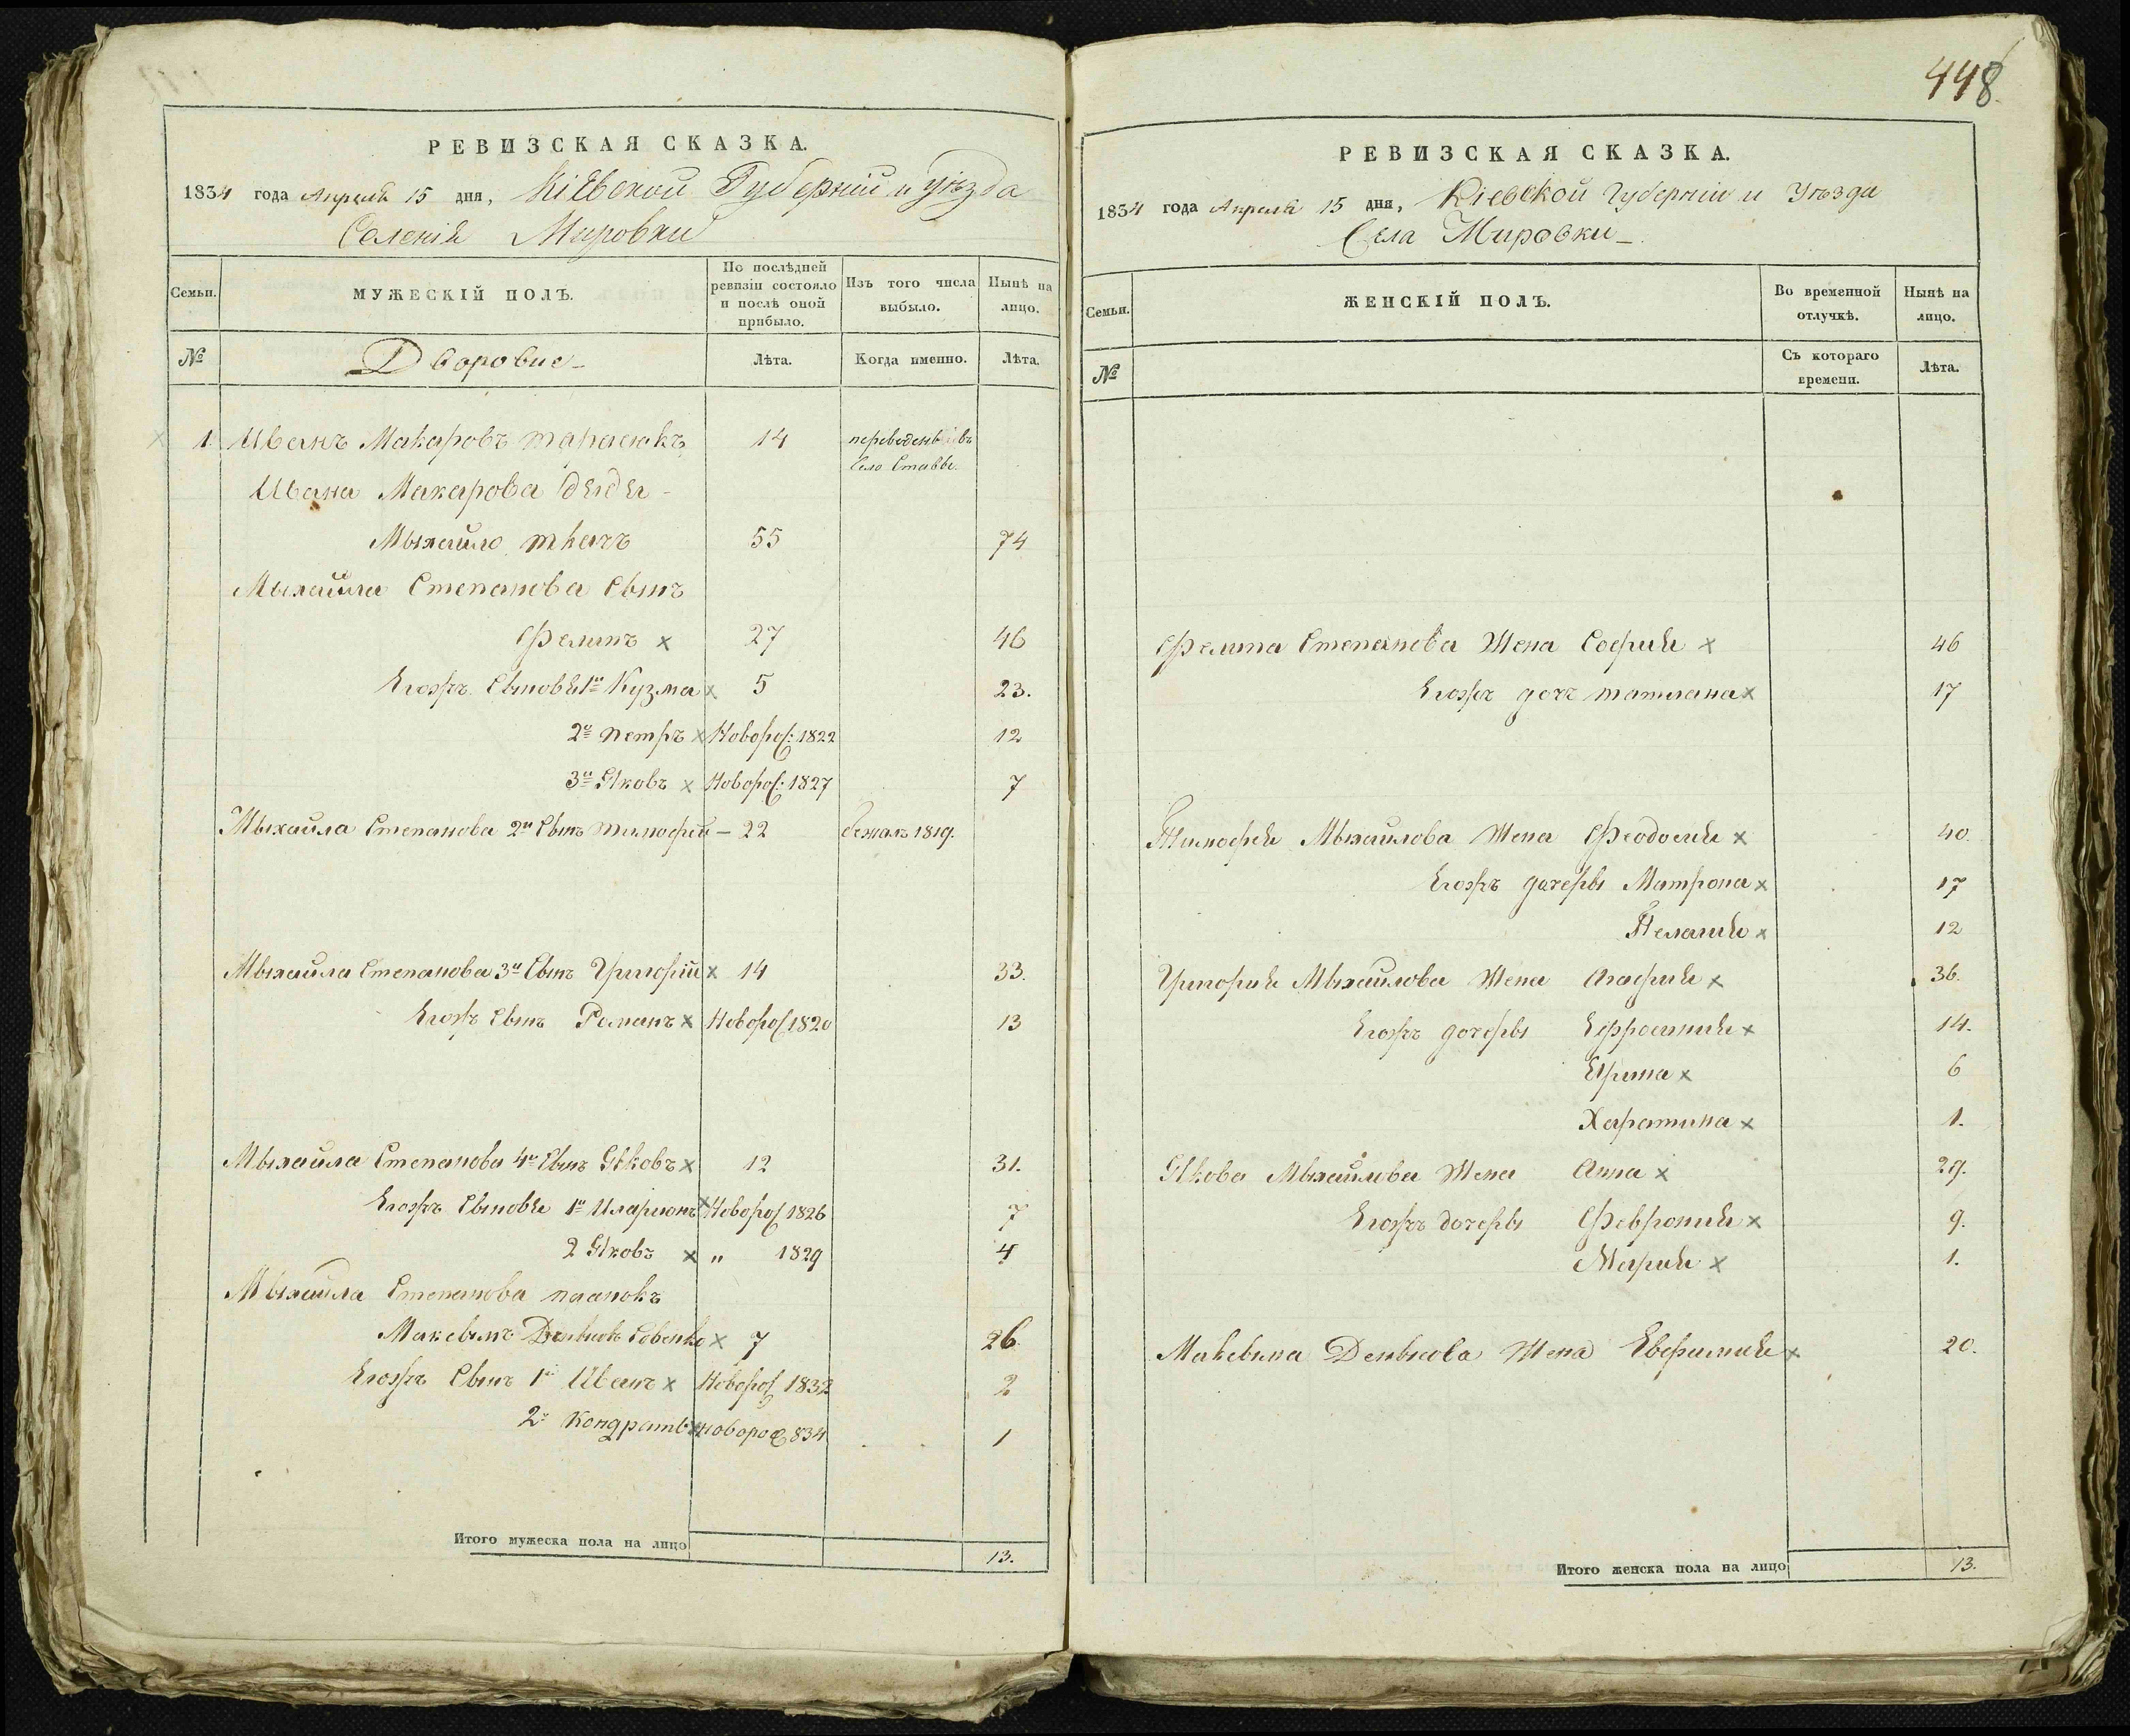 448
РЕВИЗСКАЯ СКАЗКА.
1834 года Апреля 15 дня, Кіевской Губерніи и уѣзда
Селенія Мировки
Семьи.
МУЖЕСКІЙ ПОЛЪ.
По послѣдней ревизіи состояло и послѣ оной прибыло.
Изъ того числа выбыло.
Нынѣ на лицо.
№
Дворовие
Лѣта.
Когда именно.
Лѣта.
1 Иванъ Макаровъ тарасюкъ 14 переведенъ въ
село Ставы.
Ивана Макарова дядя
Мыхайло ткачъ 55 74
Мыхайла Степанова Сынъ
Филипъ x 27 46
Егожъ Сыновя 1й Кузма x 5 23.
2й петръ x Новорож: 1822 12
3й Яковъ x Новорож: 1827 7
Мыхайла Степанова 2й Сынъ тимофей – 22 бежалъ 1819.
Мыхайла Степанова 3й Сынъ Григорій x 14 33.
Егожъ Сынъ Романъ x Новорож 1820 13
Мыхайла Степанова 4й Сынъ Яковъ x 12 31.
Егожъ Сыновя 1й Иларионъ x Новорож 1826 7
2 Яковъ x „ 1829 4
Мыхайла Степанова
Максымъ x 7 26
Егожъ Сынъ 1й Иванъ x Новорож 1832 2
2й Кондратъ x новорож 834 1
Итого мужеска пола на лицо 13.
РЕВИЗСКАЯ СКАЗКА.
1834 года Апреля 15 дня, Кіевской Губерніи и Уѣзда
Села Мировки
Семьи.
ЖЕНСКІЙ ПОЛЪ.
Во временной отлучкѣ.
Нынѣ на лицо.
№
Съ котораго времени.
Лѣта.
Степанова Жена София x 46
Егожъ дочъ татиана x 17
Тимофея Мыхайлова Жена Феодосия x 40.
Егожъ дочеры Матрона x 17
Пелагия x 12
Григория Мыхайлова Жена Агафия x 36.
Егожъ дочеры Ефросиния x 14.
Ирина x 6
Харатина x 1.
Якова Мыхайлова Жена Анна x 29.
Егожъ дочеры Феврония x 9.
Мария x 1.
Максыма Денысова Жена x 20.
Итого женска пола на лицо 13.